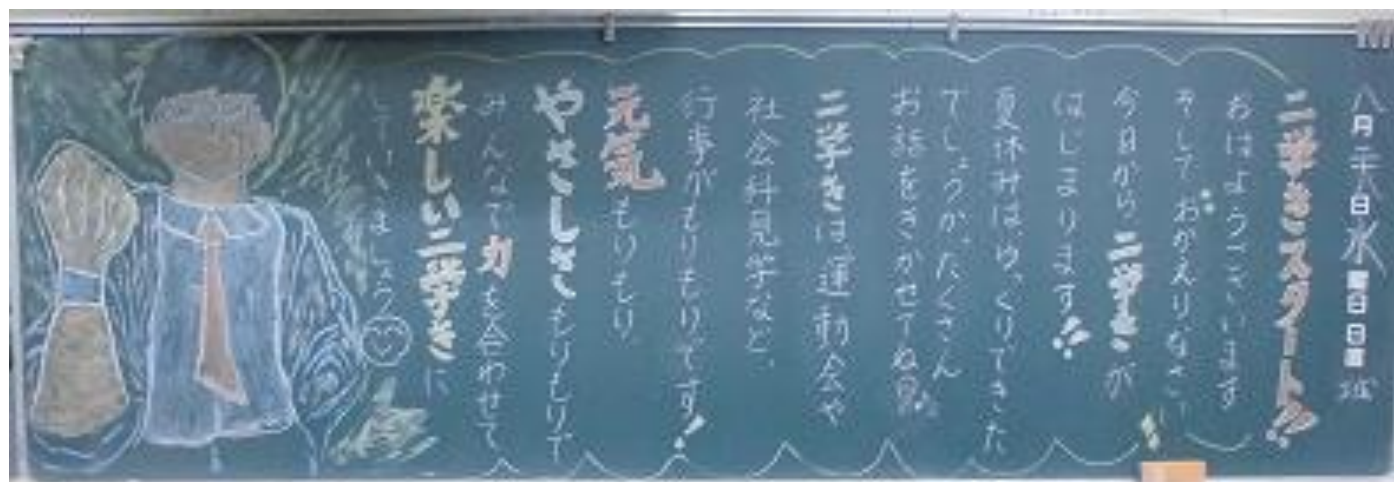 八月二六日水曜日日直
二学きスタート!!
おはようございます
そして、おかえりなさい
今日から二学きが
はじまります!!
夏休みは、ゆっくりできた
でしょうか。たくさん
お話をきかせてね
二学きは運動会や
社会科見学など、
行事がもりもりです!
元気もりもり、
やさしさもりもりで
みんなで力を合わせて
楽しい二学きに
していきましょう